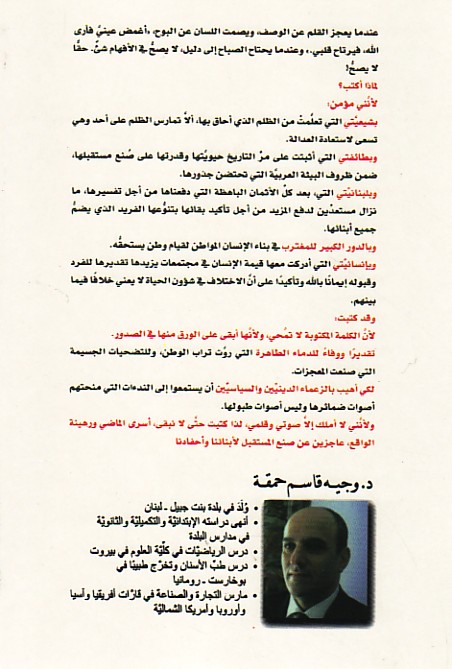 عندما يعجز القلم عن الوصف، ويصمت اللسان عن البوح، «أغمض عينيَّ فأرى
الله، فيرتاح قلبي.» وعندما يحتاج الصباح إلى دليل، لا يصحُّ في الأفهام شئ. حقًا
لا يصحُّ!
لماذا أكتب؟
لأنّني مؤمن:
بشيعيّتي التي تعلّمتْ من الظلم الذي أحاق بها، ألاَّ تمارس الظلم على أحد وهي
تسعى لاستعادة العدالة.
وبطائفتي التي أثبتت على مرِّ التاريخ حيويّتها وقدرتها على صُنع مستقبلها،
ضمن ظروف البيئة العربيَّة التي تحتضن جذورها.
وبلبنانيّتي التي، بعد كلِّ الأثمان الباهظة التي دفعناها من أجل تفسيرها، ما
نزال مستعدّين لدفع المزيد من أجل تأكيد بقائها بتنوُّعها الفريد الذي يضمُّ
جميع أبنائها.
وبالدور الكبير للمغترب في بناء الإنسان المواطن لقيام وطن يستحقُّه.
وبإنسانيّتي التي أدركت معها قيمة الإنسان في مجتمعات يزيدها تقديرها للفرد
وقبوله إيمانًا بالله وتأكيدًا على أنَّ الاختلاف في شؤون الحياة لا يعني خلافًا فيما
بينهم.
وقد كتبت:
لأنَّ الكلمة المكتوبة لا تمَّحي، ولأنّها أبقى على الورق منها في الصدور.
تقديرًا ووفاءً للدماء الطاهرة التي روَّت تراب الوطن، وللتضحيات الجسيمة
التي صنعت المعجزات.
لكي أهيب بالزعماء الدينيّين والسياسيّين أن يستمعوا إلى النداءات التي منحتهم
أصوات ضمائرها وليس أصوات طبولها.
ولأنّني لا أملك إلاَّ صوتي وقلمي، لذا كتبت حتَّى لا نبقى، أسرى الماضي ورهينة
الواقع، عاجزين عن صنع المستقبل لأبنائنا وأحفادنا
د. وجيه قاسم حمقة
• وُلدَ في بلدة بنت جبيل - لبنان
• أنهى دراسته الإبتدائيَّة والتكميليَّة والثانويَّة
في مدارس البلدة
• درس الرياضيّات في كلّيَّة العلوم في بيروت
• درس طبَّ الأسنان وتخرَّج طبيبًا في
بوخارست - رومانيا
• مارس التجارة والصناعة في قارَّات أفريقيا وآسيا
وأوروبا وأمريكا الشماليَّة